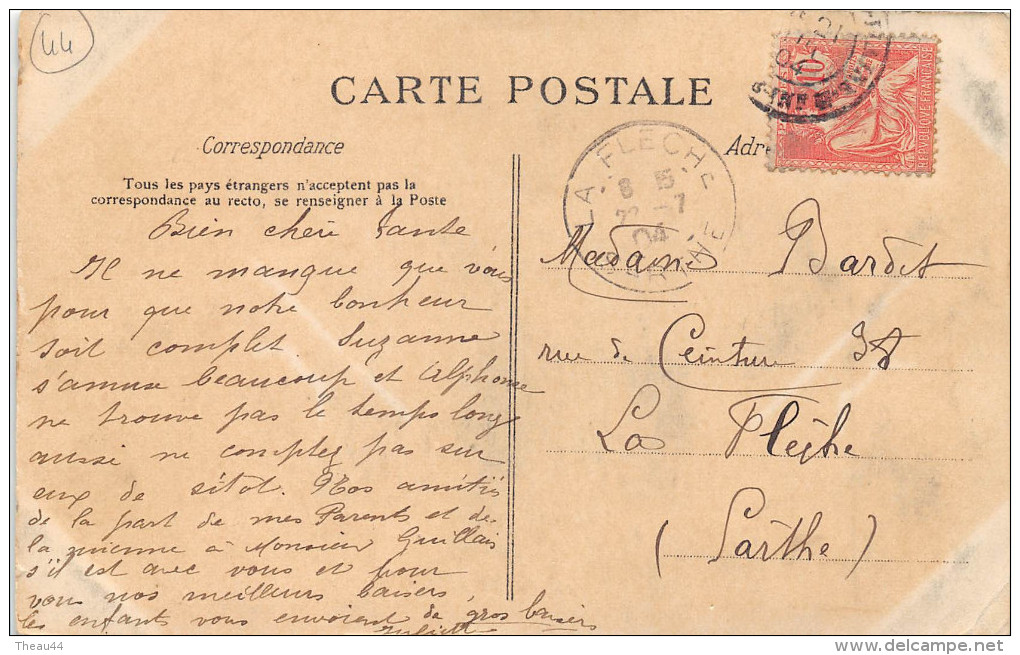 44
CARTE POSTALE
Correspondance
Adre
Tous les pays étrangers n'acceptent pas la
correspondance au recto, se renseigner à la Poste
10
REPUBLIQUE FRANÇAISE
LA FLECHE
8 15
22 -7
04
SARTHE
Bien chère tante
Il ne manque que vous
pour que notre bonheur
soit complet. Suzanne
s'amuse beaucoup et Alphonse
ne trouve pas le temps long
aussi ne comptez pas sur
eux de sitot. Nos amitiés
de la part de mes Parents et de
la mienne à Monsieur Guillais
s'il est avec vous et pour
vous nos meilleurs baisers,
les enfants vous envoient de gros baisers
Madame Bardet
rue de Ceinture 38
La Flèche
(Sarthe)
Theau44
delcampe.net